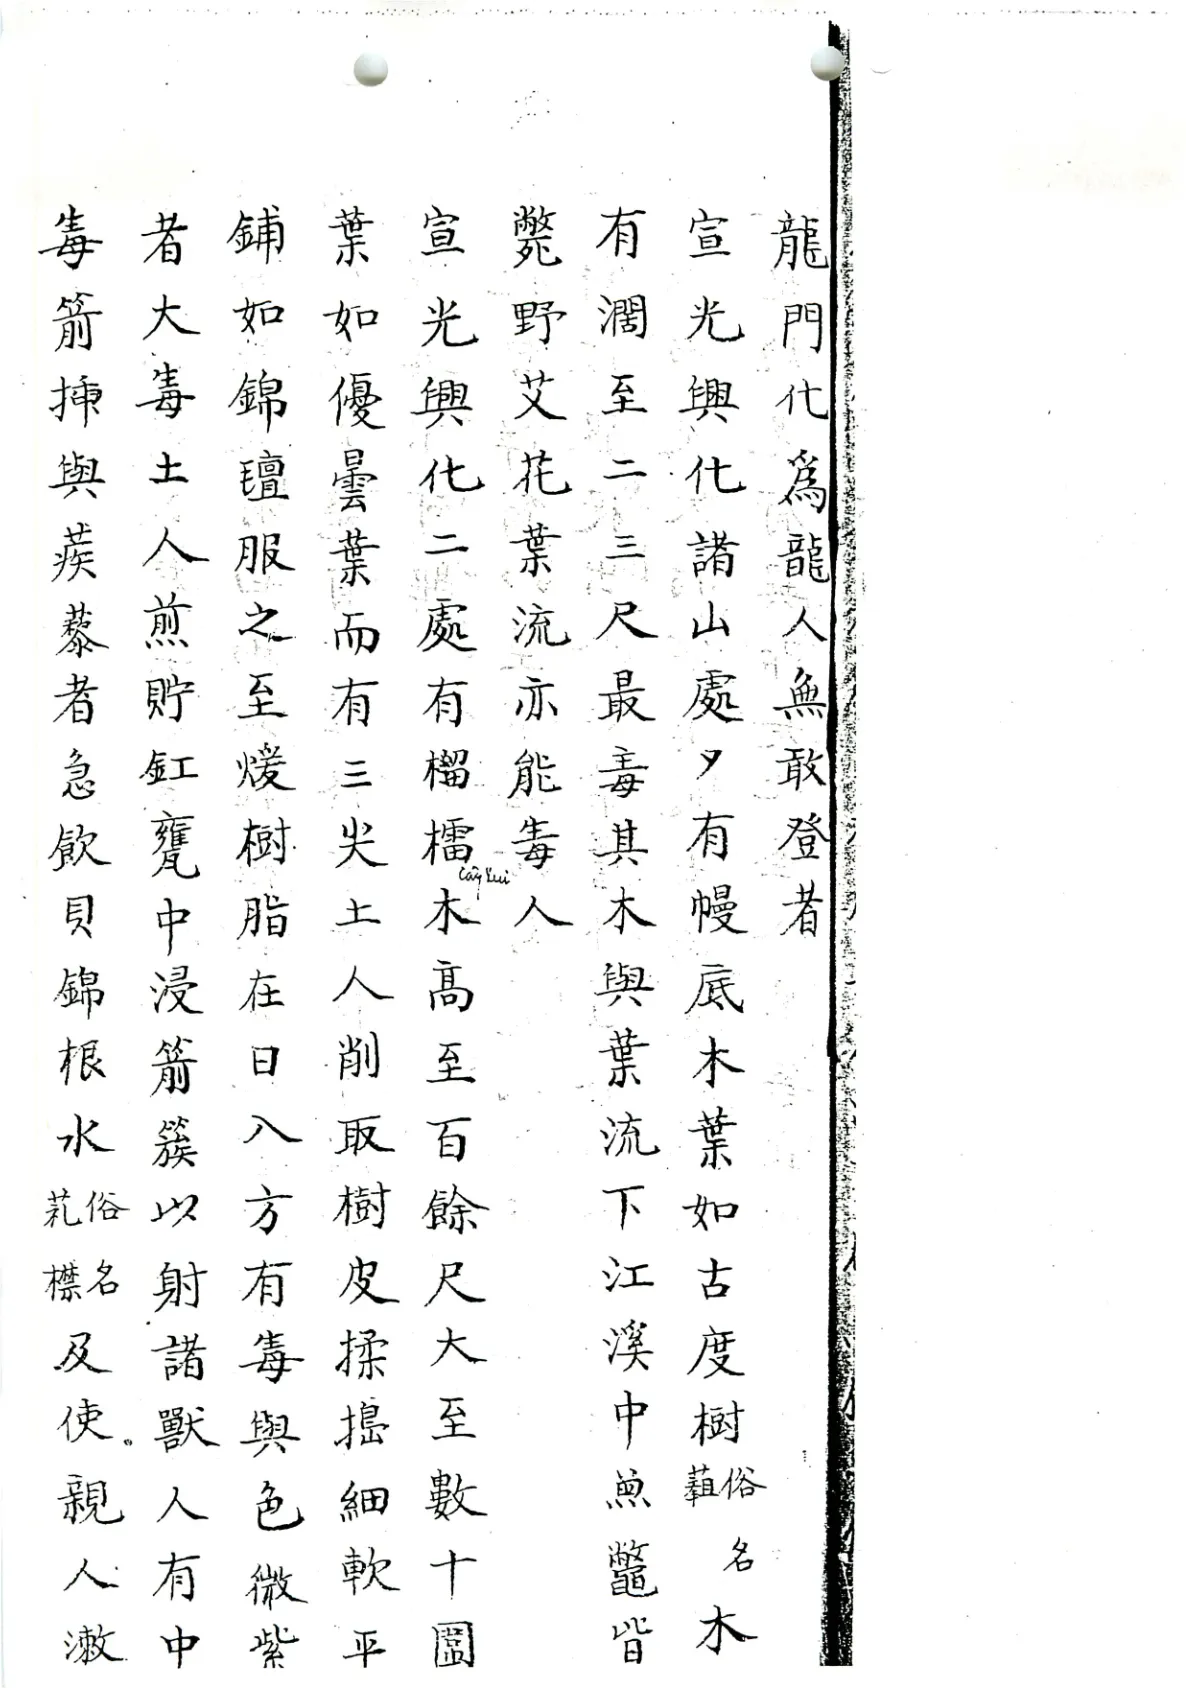 龍門化爲龍人無敢登者
宣光興化諸山處夕有幔底木葉如古度樹俗名蒩木
有濶至二三尺最毒其木與葉流下江溪中魚鼈皆
斃野艾花葉流亦能毒人
宣光興化二處有榴檑木高至百餘尺大至數十圍
Cây Lui
葉如優曇葉而有三尖土人削取樹皮揉搗細軟平
鋪如錦氊服之至煖樹脂在日入方有毒與色微紫
者大毒土人煎貯缸甕中浸箭簇以射諸獸人有中
毒箭揷與蒺藜者急飲貝錦根水俗名 及使親人漱